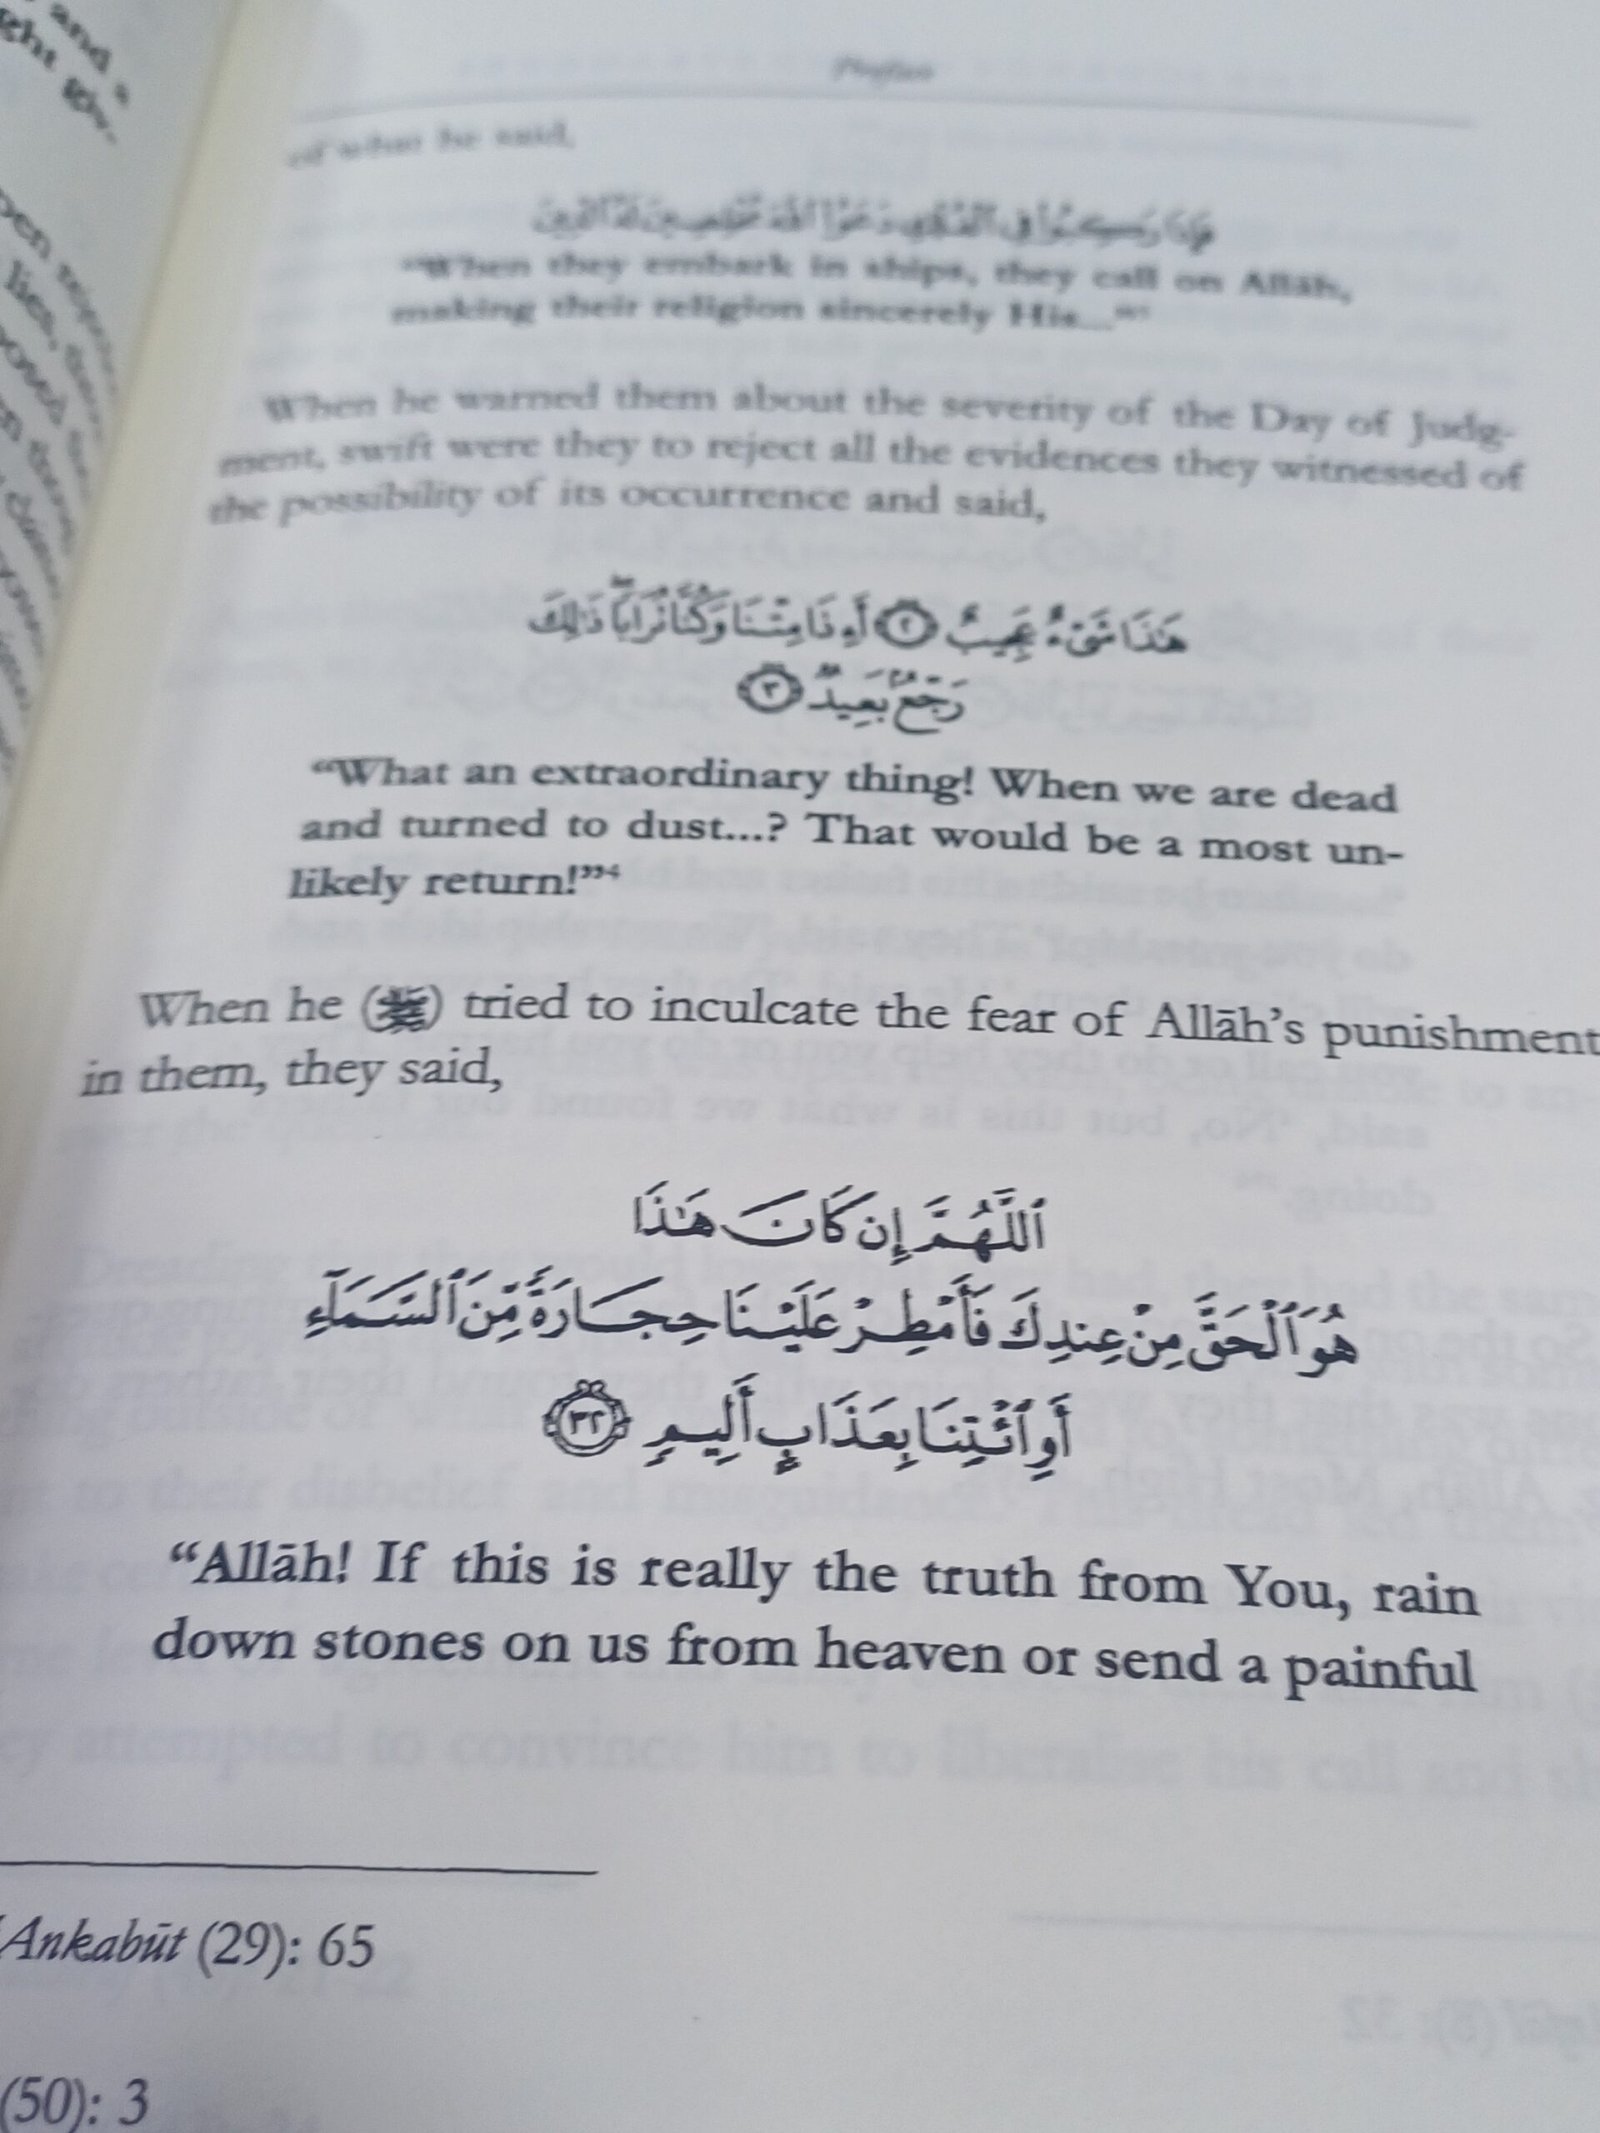 of what he said,
فَإِذَا رَكِبُوا فِي الْفُلْكِ دَعَوُا اللَّهَ مُخْلِصِينَ لَهُ الدِّينَ
“When they embark in ships, they call on Allāh,
making their religion sincerely His...”
When he warned them about the severity of the Day of Judg-
ment, swift were they to reject all the evidences they witnessed of
the possibility of its occurrence and said,
هَٰذَا شَىْءٌ عَجِيبٌ ٢ أَءِذَا مِتْنَا وَكُنَّا تُرَابًا ذَٰلِكَ
رَجْعٌ بَعِيدٌ ٣
“What an extraordinary thing! When we are dead
and turned to dust...? That would be a most un-
likely return!”4
When he (ﷺ) tried to inculcate the fear of Allāh’s punishment
in them, they said,
ٱللَّهُمَّ إِن كَانَ هَٰذَا
هُوَ ٱلْحَقَّ مِنْ عِندِكَ فَأَمْطِرْ عَلَيْنَا حِجَارَةً مِّنَ ٱلسَّمَآءِ
أَوِ ٱئْتِنَا بِعَذَابٍ أَلِيمٍ ٣٢
“Allāh! If this is really the truth from You, rain
down stones on us from heaven or send a painful
Ankabūt (29): 65
(50): 3